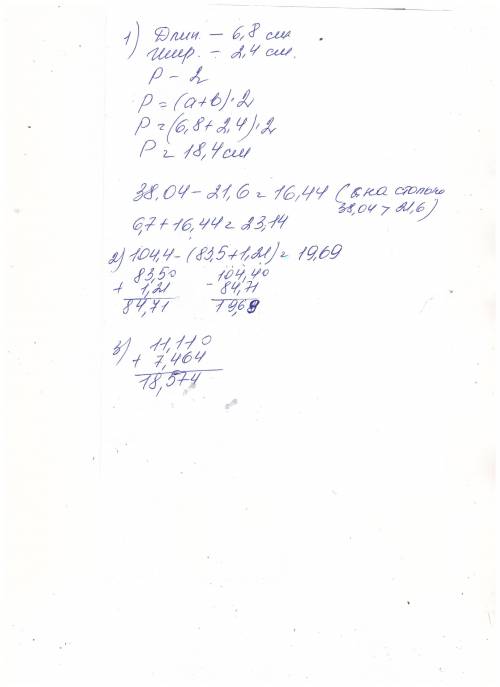 1) Длин. – 6,8 см
Шир. – 2,4 см.
P – 2
P = (a+b)·2
P = (6,8+2,4)·2
P = 18,4 см
38,04 – 21,6 = 16,44 ( на столько
38,04 > 21,6)
6,7 + 16,44 = 23,14
2) 104,4 – (83,5 + 1,21) = 19,69
83,50 104,40
+ 1,21 - 84,71
84,71 19,69
3) 11,110
+ 7,464
18,574